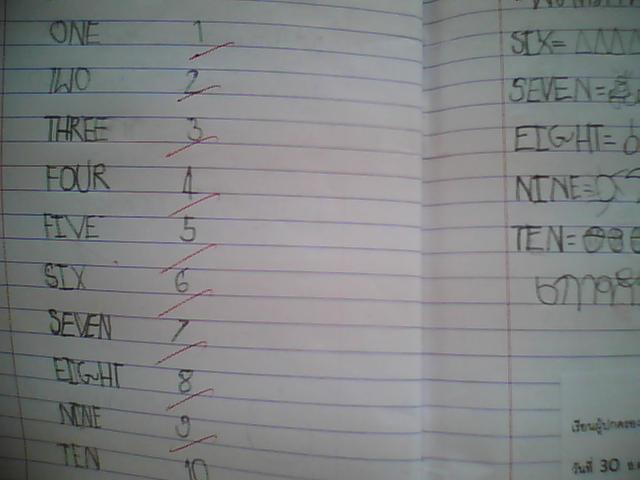 ONE 1
TWO 2
THREE 3
FOUR 4
FIVE 5
SIX 6
SEVEN 7
EIGHT 8
NINE 9
TEN 10
SIX=
SEVEN=
EIGHT=
NINE=
TEN=
วันที่ 30